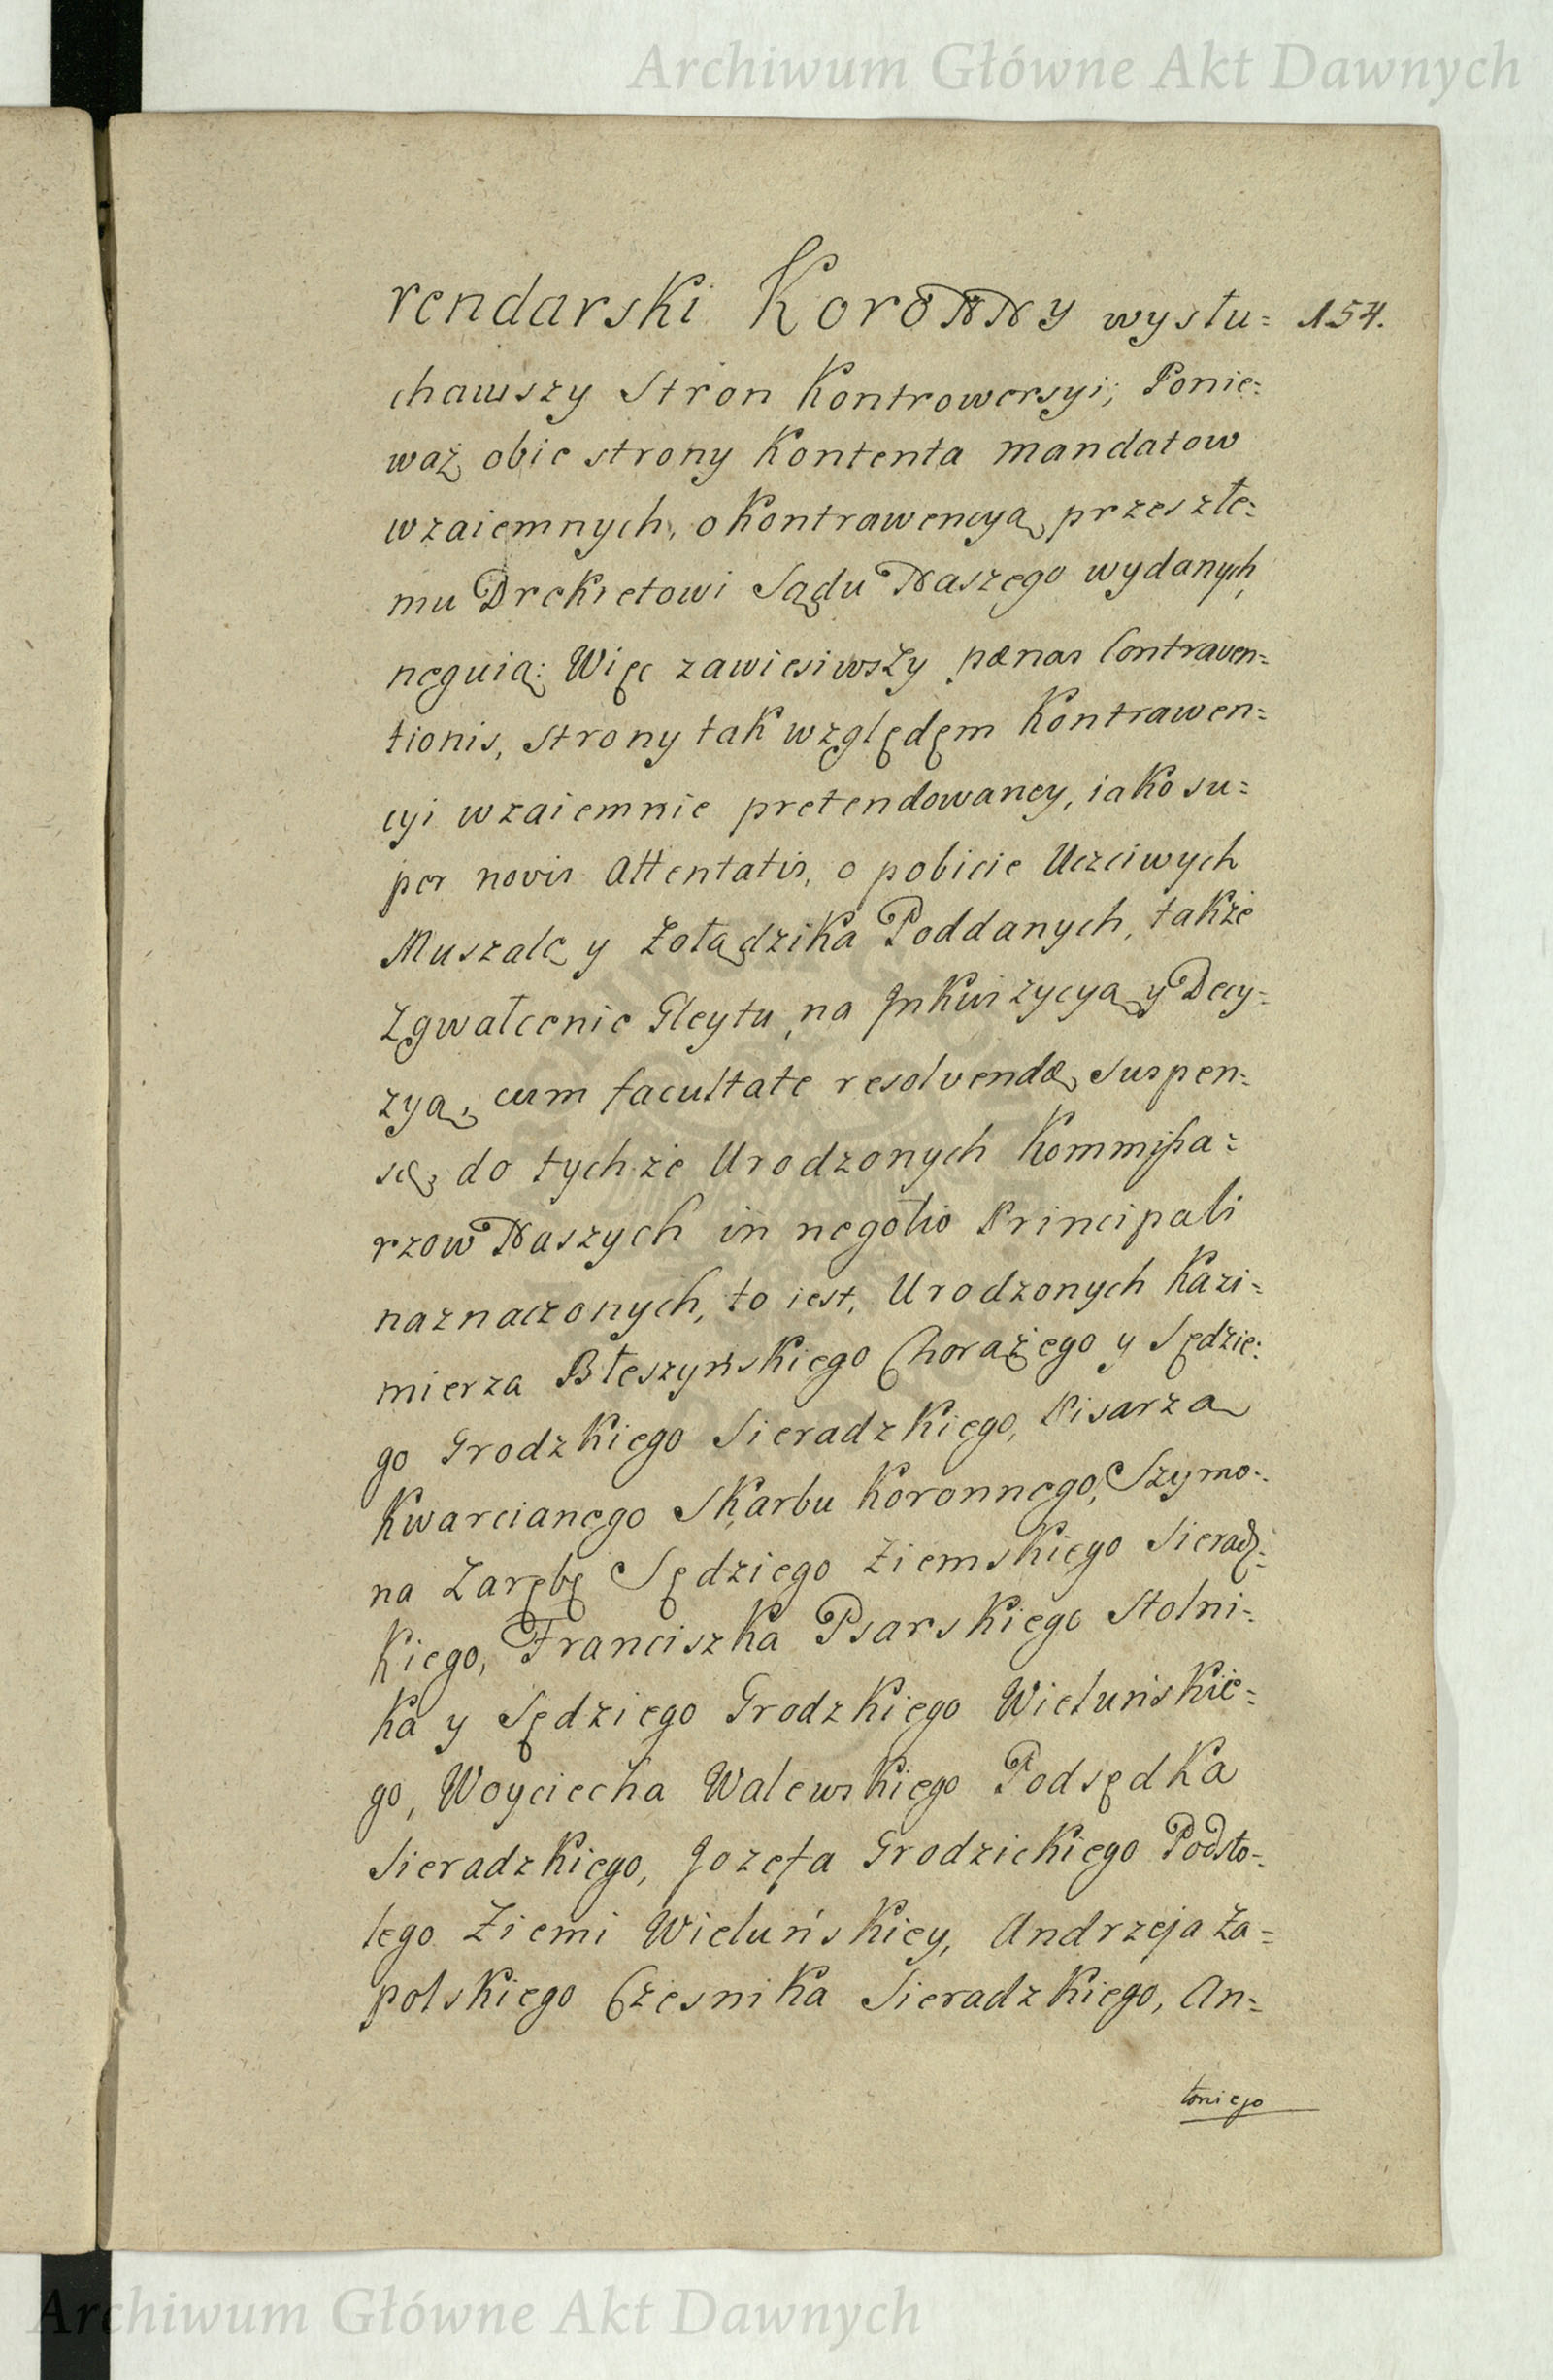 Archiwum Główne Akt Dawnych
rendarski Koronny wysłu= 154.
chawszy Stron Kontrowersyi; Ponie=
waż obie strony Kontenta mandatow
wzaiemnych, o Kontrawencyą przeszłe=
mu Dekretowi Sądu Naszego wydanych,
neguią: Więc zawiesiwszy pænas Contraven=
tionis, strony tak względęm Kontrawen=
cyi wzaiemnie pretendowaney, iako su=
per novis Attentatis, o pobicie Uczciwych
Muszale y Zołądzika Poddanych, także
Zgwałcenie Gleytu, na Inkwizycyą y Decy=
zyą, cum facultate resolvendæ, suspen=
sę, do tychże Urodzonych Kommissa=
rzow Naszych in negotio Principali
naznaczonych, to iest, Urodzonych Kazi=
mierza Błeszyńskiego Chorążego y Sędzie=
go Grodzkiego Sieradzkiego, Pisarza
Kwarcianego Skarbu Koronnego, Szymo=
na Zarębę Sędziego Ziemskiego Sieradz=
kiego, Franciszka Psarskiego Stolni=
ka y Sędziego Grodzkiego Wieluńskie=
go, Woyciecha Walewskiego Podsędka
Sieradzkiego, Jozefa Grodzickiego Podsto=
lego Ziemi Wieluńskiey, Andrzeja Za=
polskiego Czesnika Sieradzkiego, An=
toniego
Archiwum Główne Akt Dawnych